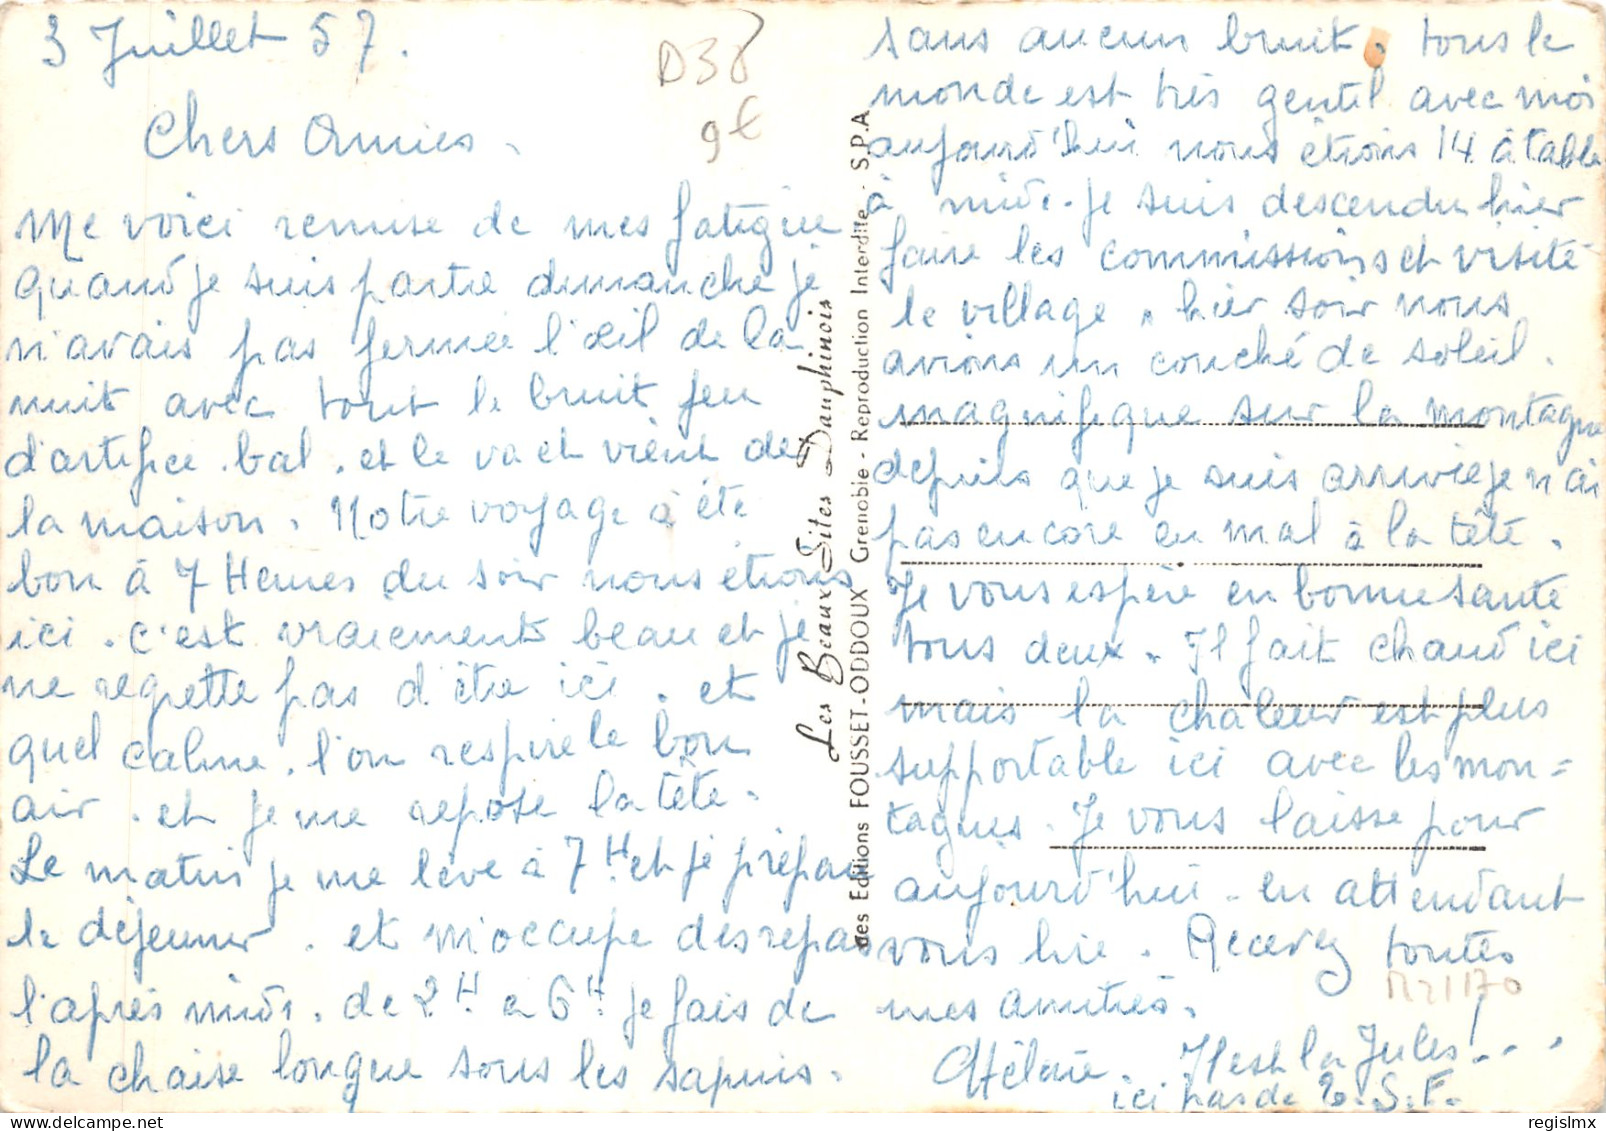 3 Juillet 57.
Chers Amies.
Me voici remise de mes fatigue
quand je suis partie dimanche je
n'avais pas fermée l'œil de la
nuit avec tout le bruit feu
d'artifice. bal. et le va et vient de
la maison. Notre voyage à été
bon à 7 Heures du soir nous étions
ici. c'est vraiement beau et je
ne regrette pas d'être ici. et
quel calme. l'on respire le bon
air. et je me repose la tête.
Le matin je me lève à 7 H. et je prépare
le déjeuner. et m'occupe des repas
l'après midi. de 2 H. a 6 H. je fais de
la chaise longue sous les sapins.
sans aucun bruit. tous le
monde est très gentil avec moi
aujourd'hui nous étions 14 à table
à midi. Je suis descendu hier
faire les commissions et visité
le village. hier soir nous
avions un couché de soleil.
magnifique sur la montagne
depuis que je suis arrivée je n'ai
pas encore eu mal à la tête.
Je vous espère en bonne santé
tous deux. Il fait chaud ici
mais la chaleur est plus
supportable ici avec les mon=
tagnes. Je vous laisse pour
aujourd'hui. en attendant
vous lire. Recevez toutes
mes amitiés.
Hélène. Il est la Jules! ...
ici pas de T.S.F.
D38
9€
M21170
Les Beaux Sites Dauphinois
des Editions FOUSSET-ODDOUX Grenoble - Reproduction Interdite - S.P.A
www.regislmx